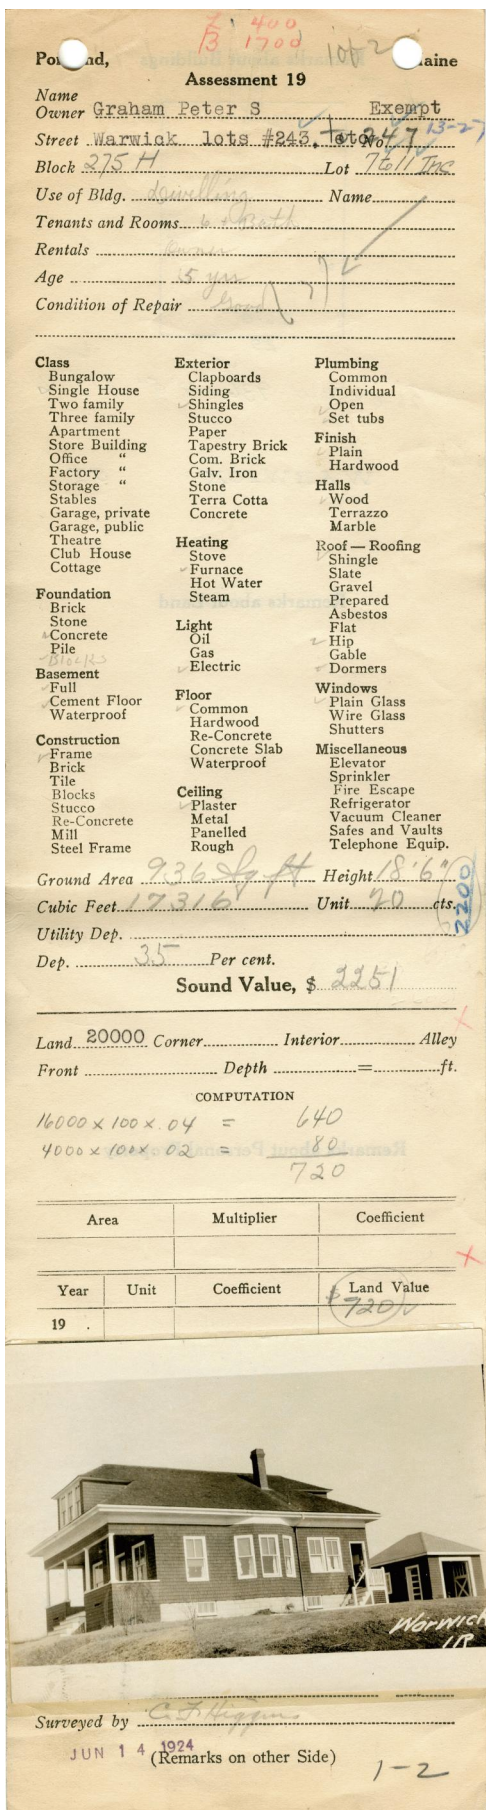 L. 400
B 1700
1 of 2
Po nd, aine
Assessment 19
Name
Owner Graham Peter S Exempt
Street Warwick lots #243, to 247 No. 13-27
Block 275 H Lot 7 to 11 Inc
Use of Bldg. dwelling Name
Tenants and Rooms 6 + Bath
Rentals Owner
Age 5 yrs
Condition of Repair Good
Class
Bungalow
Single House
Two family
Three family
Apartment
Store Building
Office "
Factory "
Storage "
Stables
Garage, private
Garage, public
Theatre
Club House
Cottage
Foundation
Brick
Stone
Concrete
Pile
Blocks
Basement
Full
Cement Floor
Waterproof
Construction
Frame
Brick
Tile
Blocks
Stucco
Re-Concrete
Mill
Steel Frame
Exterior
Clapboards
Siding
Shingles
Stucco
Paper
Tapestry Brick
Com. Brick
Galv. Iron
Stone
Terra Cotta
Concrete
Heating
Stove
Furnace
Hot Water
Steam
Light
Oil
Gas
Electric
Floor
Common
Hardwood
Re-Concrete
Concrete Slab
Waterproof
Ceiling
Plaster
Metal
Panelled
Rough
Plumbing
Common
Individual
Open
Set tubs
Finish
Plain
Hardwood
Halls
Wood
Terrazzo
Marble
Roof — Roofing
Shingle
Slate
Gravel
Prepared
Asbestos
Flat
Hip
Gable
Dormers
Windows
Plain Glass
Wire Glass
Shutters
Miscellaneous
Elevator
Sprinkler
Fire Escape
Refrigerator
Vacuum Cleaner
Safes and Vaults
Telephone Equip.
Ground Area 936 Sq ft Height 18'6"
Cubic Feet 17316 Unit 20 cts.
2200
Utility Dep.
Dep. 35 Per cent.
Sound Value, $ 2251
Land 20000 Corner Interior Alley
Front Depth = ft.
COMPUTATION
16000 x 100 x .04 = 640
4000 x 100 x .02 = 80
720
Area Multiplier Coefficient
Year Unit Coefficient Land Value
$ 720
19 .
Warwick
1R
Surveyed by C. F. Higgins
JUN 14 1924
(Remarks on other Side)
1-2